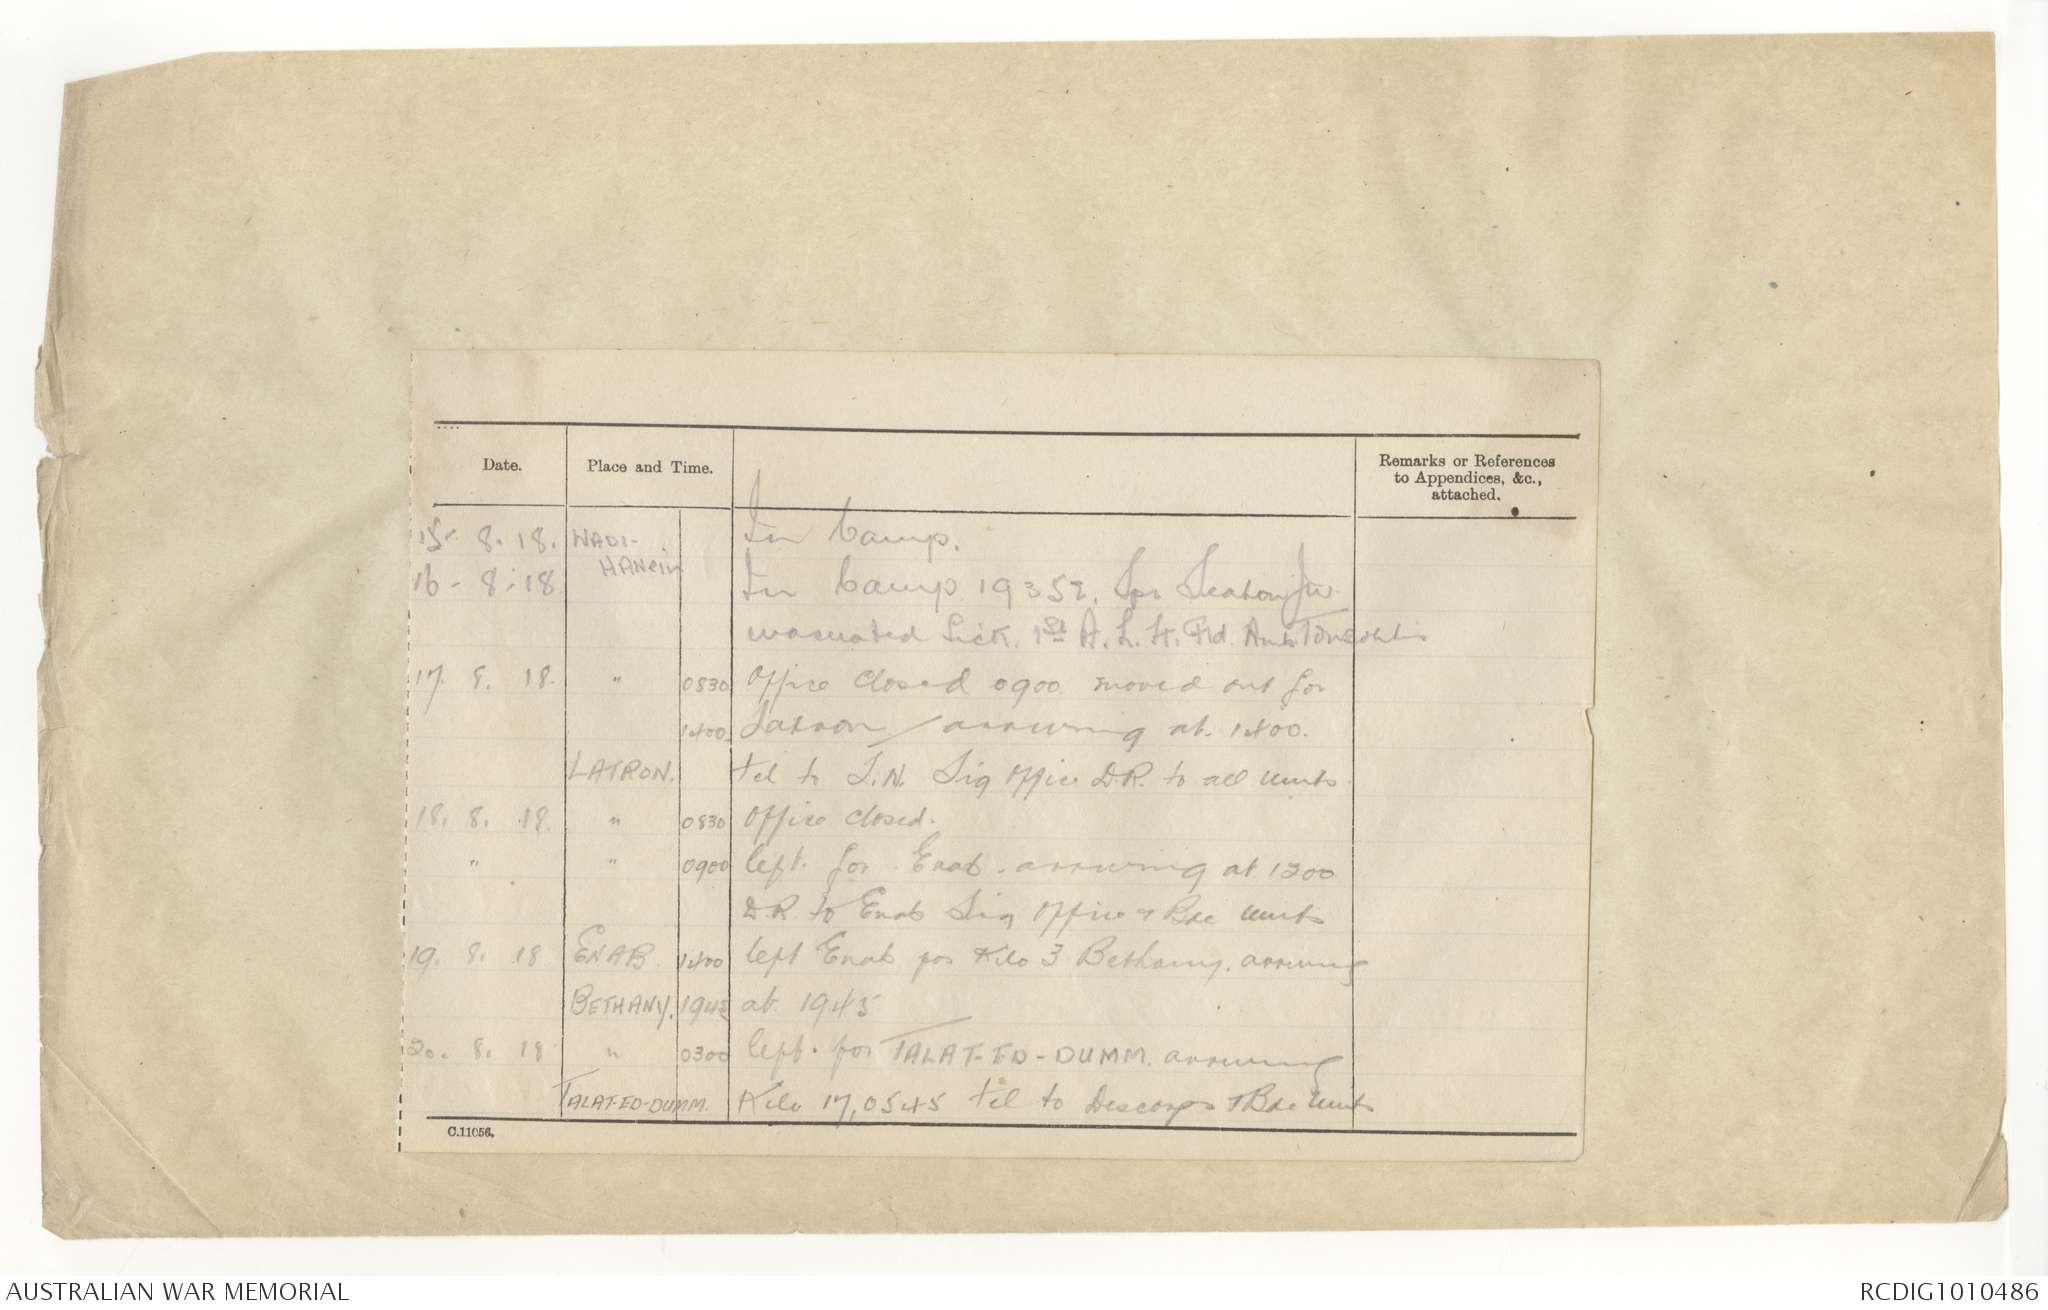 Date.
Place and Time.
Remarks or References
to Appendices, &c.,
attached.
15. 8. 18. WADI- In Camp.
HANein
16 - 8. 18 In Camp 19352. Spr Seaton JW
evacuated Sick. 1st A. L. H. Fld. Amb.
17. 8. 18. " 0830 Office closed 0900 moved out for
1400. Latron / arriving at 1400.
LATRON. tel to Sig Office D.R. to all units
18. 8. 18. " 0830 Office closed.
" " 0900 left for Enab. arriving at 1200
D.R. to Enab Sig Office & Bde units
19. 8. 18 ENAB. 1400 left Enab for Kilo 3 Bethany. arriving
BETHANY. 1945 at 1945
20. 8. 18 " 0300 left for TALAT-ED-DUMM. arriving
TALAT-ED-DUMM. Kilo 17, 0545 tel to Descorps & Bde Units
C.11056.
AUSTRALIAN WAR MEMORIAL
RCDIG1010486